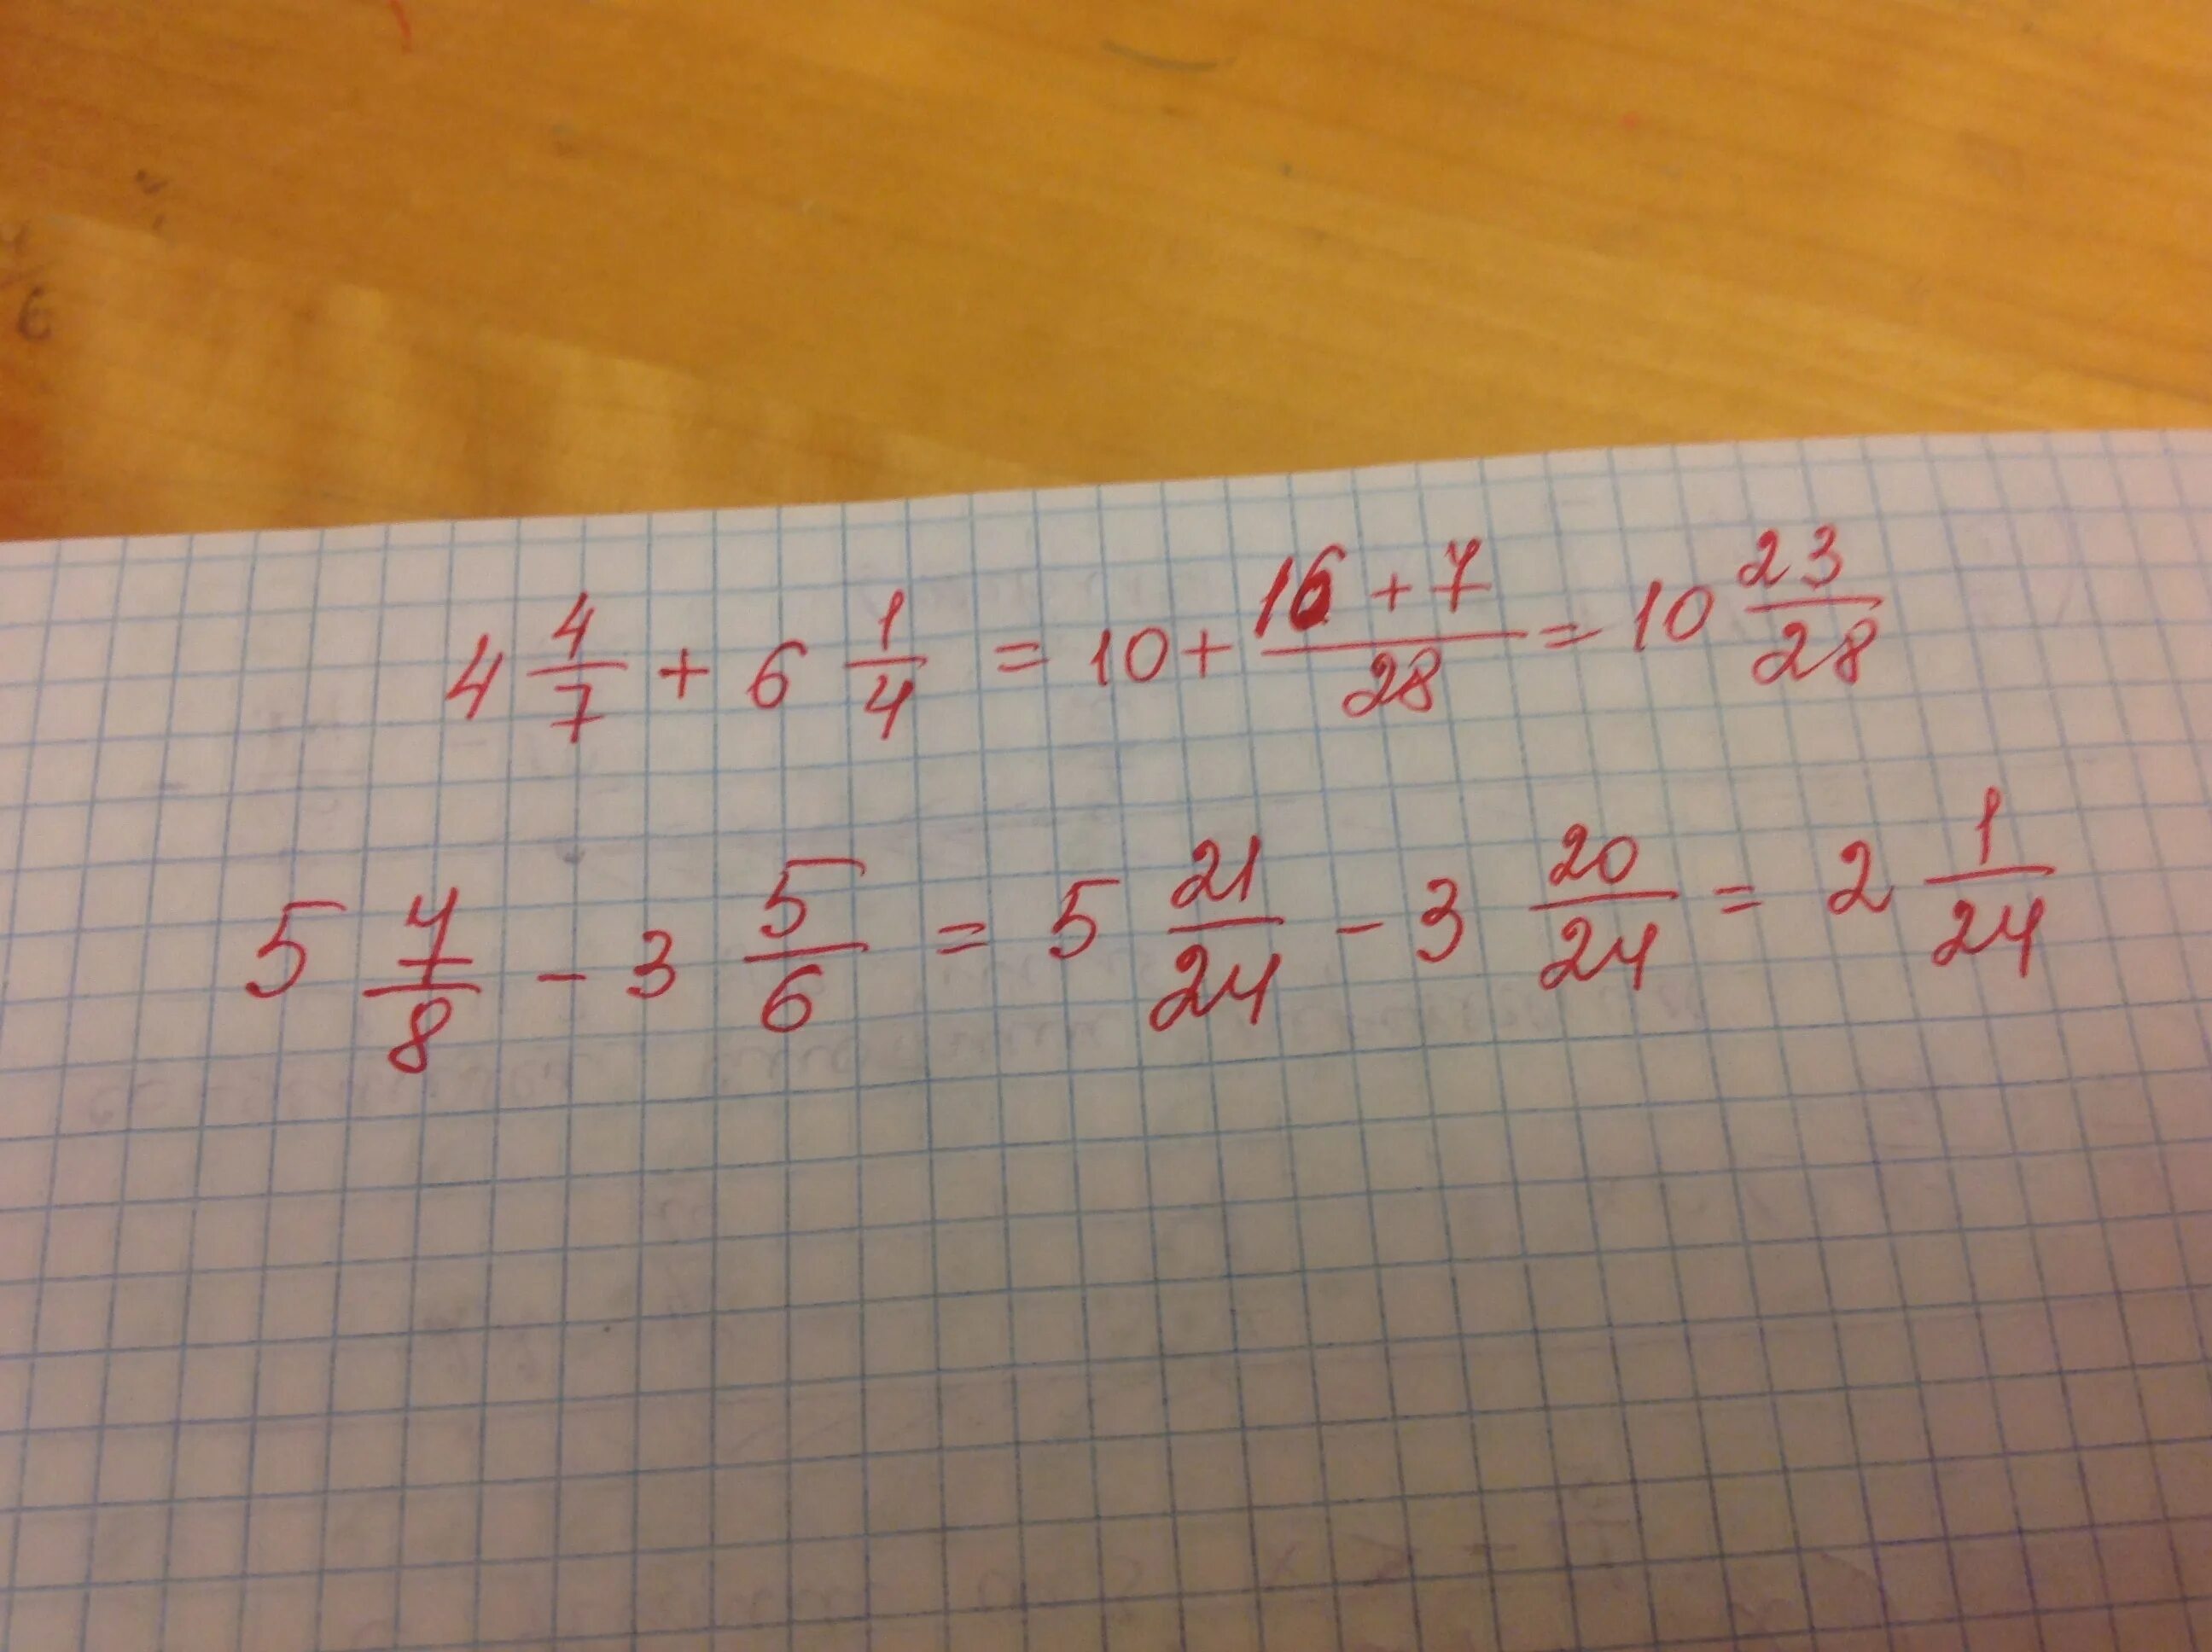 4 4/7 + 6 1/4 = 10 + (16 + 7)/28 = 10 23/28
5 7/8 - 3 5/6 = 5 21/24 - 3 20/24 = 2 1/24